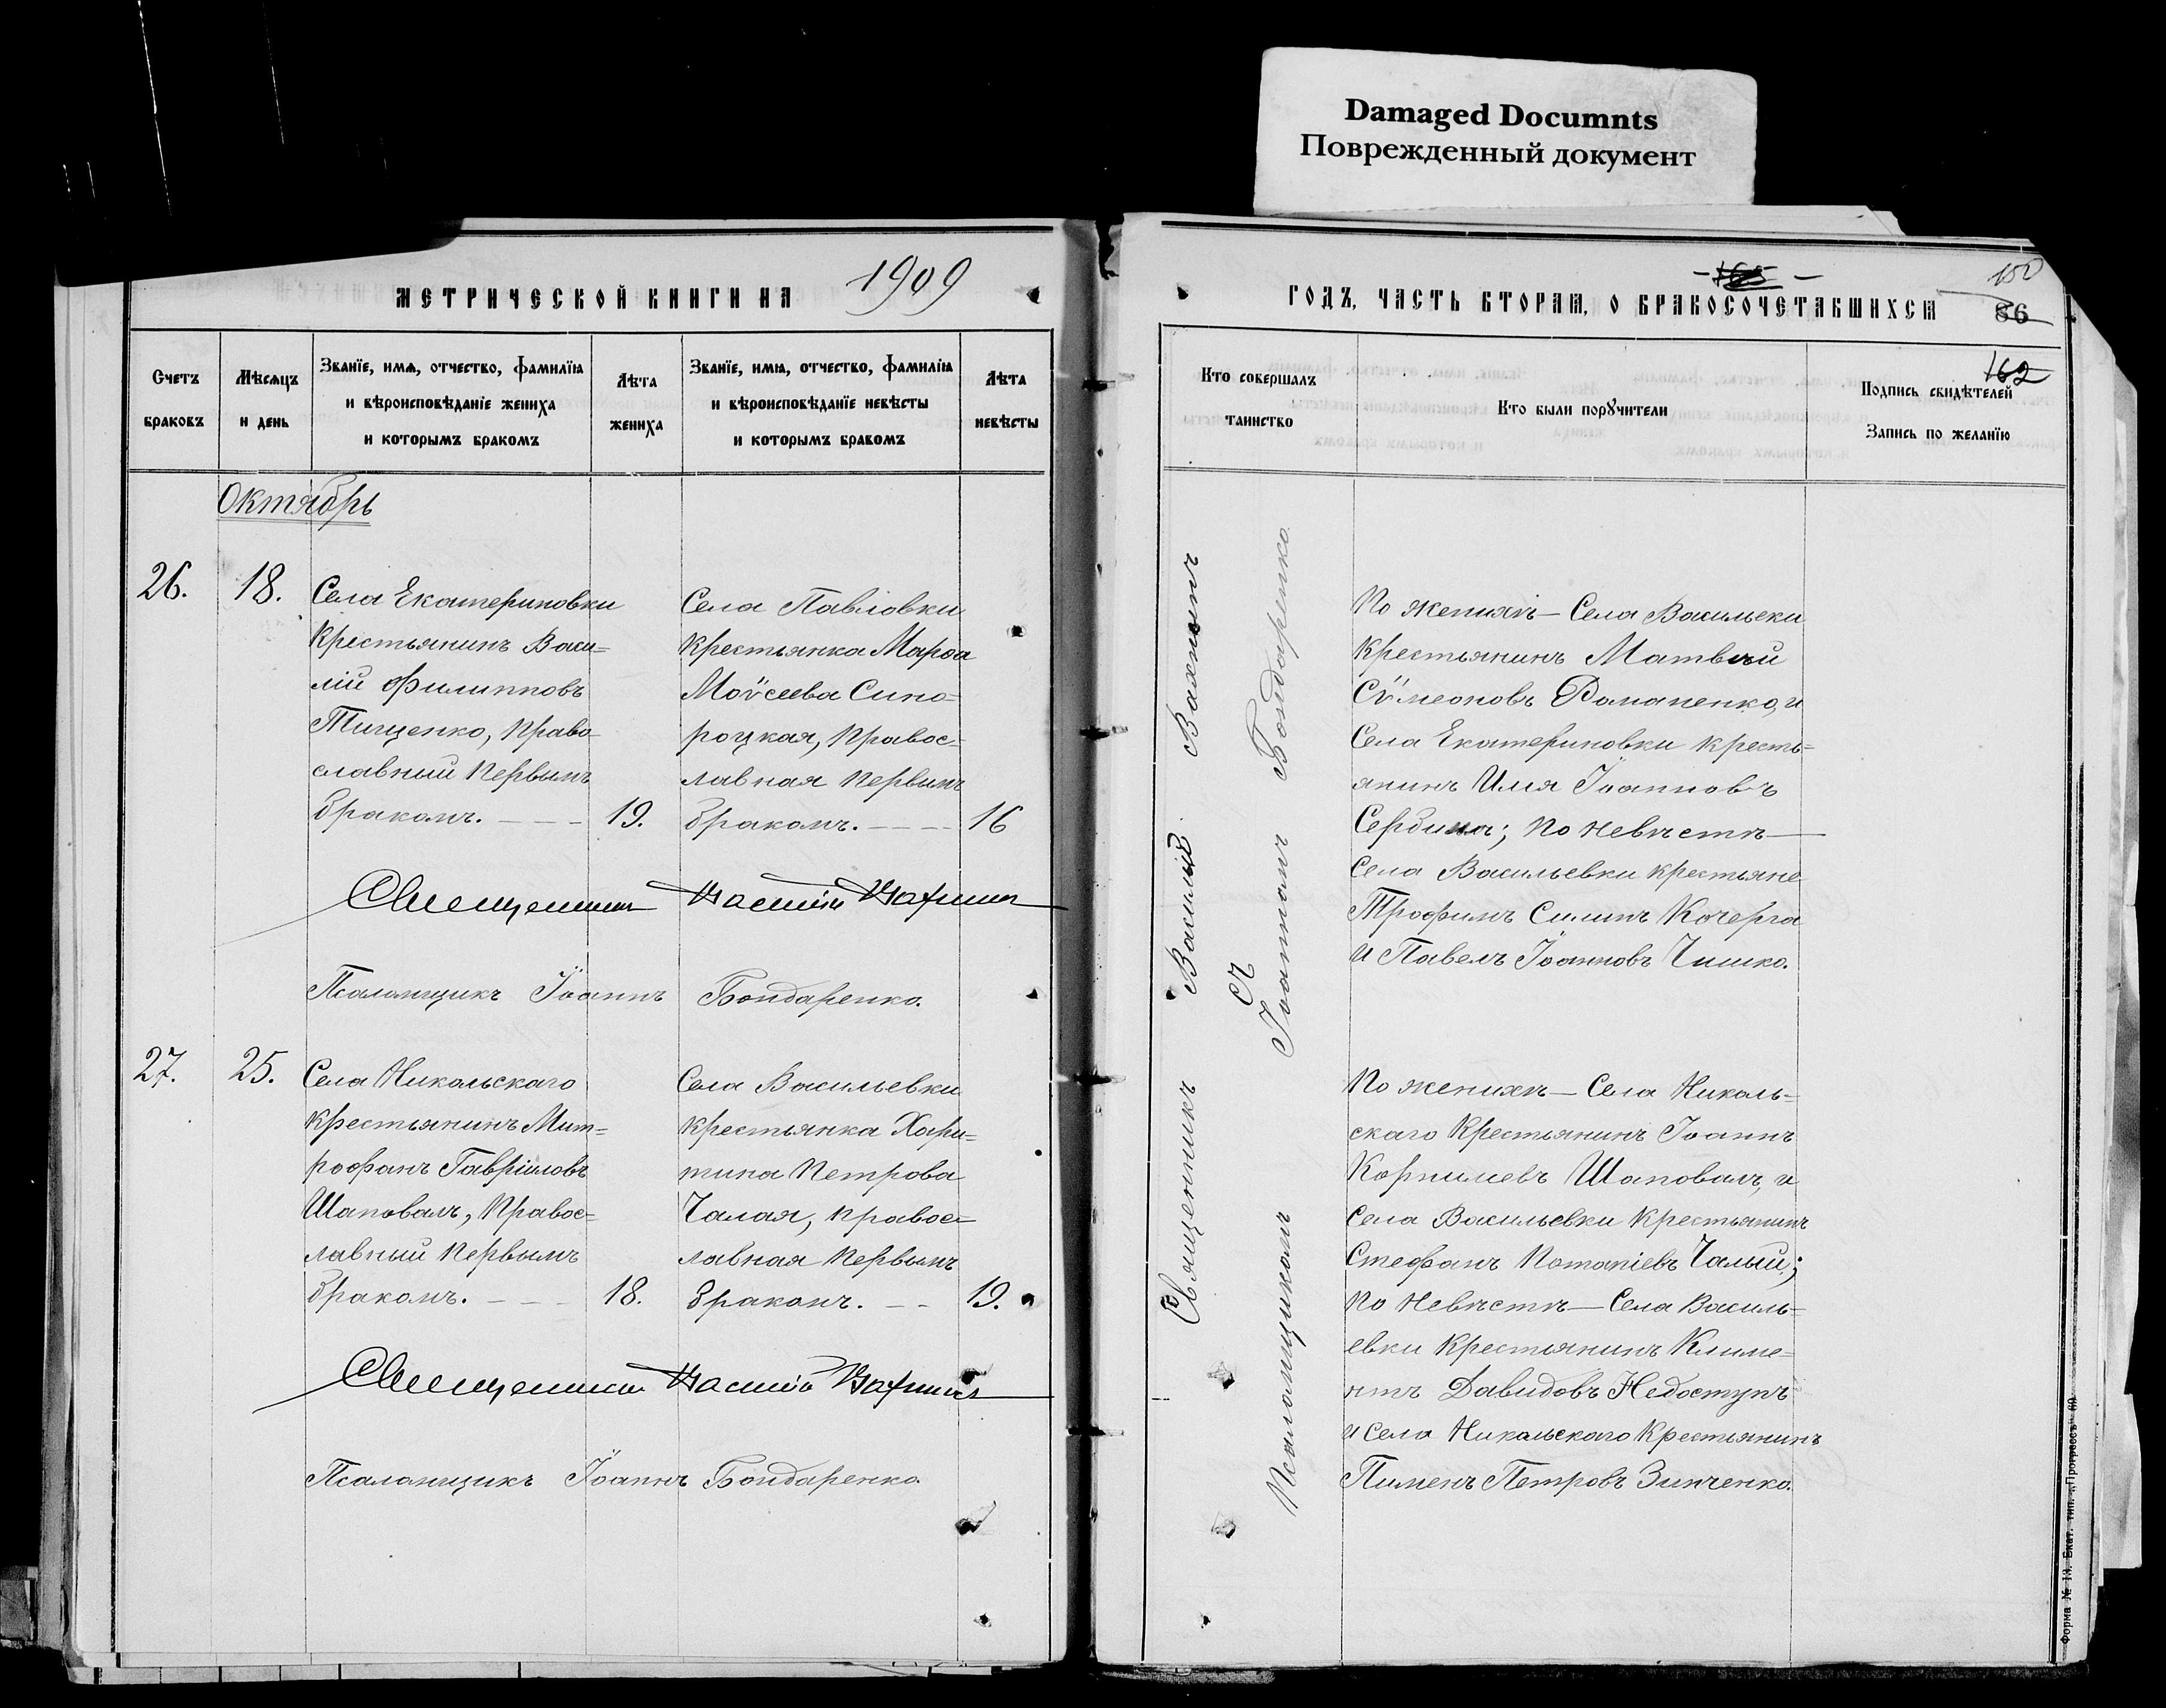 Damaged Documnts
Поврежденный документ
МЕТРИЧЕСКОЙ КНИГИ НА 1909
Счетъ браковъ
Мѣсяцъ и день
Званїе, имѧ, отчество, фамилїа
и вѣроисповѣданїе жениха
и которымъ бракомъ
Лѣта жениха
Званїе, имѧ, отчество, фамилїа
и вѣроисповѣданїе невѣсты
и которымъ бракомъ
Лѣта невѣсты
Октябрь
26.
18.
Села Екатериновки
крестьянинъ Васи=
лій Филипповъ
Тищенко, право-
славный первымъ
бракомъ. - - - 19.
Села Павловки
крестьянка Марѳа
Моѵсеева Сино-
роцкая, правос-
лавная первымъ
бракомъ. - - - 16
Священникъ Василій Вахнинъ
Псаломщикъ Іоаннъ Бондаренко.
27.
25.
Села Никольскаго
крестьянинъ Мит=
рофанъ Гавріиловъ
Шаповалъ, правос=
лавный первымъ
бракомъ. - - - 18.
Села Васильевки
крестьянка Хари=
тина Петрова
Чалая, правос=
лавная первымъ
бракомъ. - - 19.
Священникъ Василій Вахнинъ
Псаломщикъ Іоаннъ Бондаренко.
165
150
ГОДЪ, ЧАСТЬ ВТОРАѦ, О БРАКОСОЧЕТАВШИХСѦ
86
162
Кто совершалъ
таинство
Кто были порꙋчители
Подпись свидѣтелей
Запись по желанїю
Священникъ Василій Вахнинъ
съ
Псаломщикомъ Іоанномъ Бондаренко.
По женихѣ - Села Васильеки
крестьянинъ Матвѣй
Сѵмеоновъ Романенко, и
села Екатериновки кресть=
янинъ Илія Іоанновъ
по невѣстѣ -
села Васильевки крестьяне
Трофимъ Силинъ Кочерга
и Павелъ Іоанновъ Чишко.
По женихѣ - Села Николь=
скаго крестьянинъ Іоаннъ
Корниліевъ Шаповалъ, и
села Васильевки крестьянинъ
Стефанъ Потапіевъ Чалый;
по невѣстѣ - Села Василь=
евки крестьянинъ Климе=
нтъ Давидовъ Недоступъ
и села Никольскаго крестьянинъ
Пименъ Петровъ Зинченко.
Форма № 14. Екат. тип. „Прогрессъ" 60